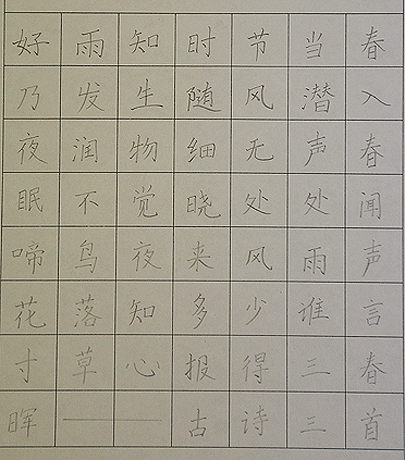 好雨知时节当春
乃发生随风潜入
夜润物细无声春
眠不觉晓处处闻
啼鸟夜来风雨声
花落知多少谁言
寸草心报得三春
晖——古诗三首